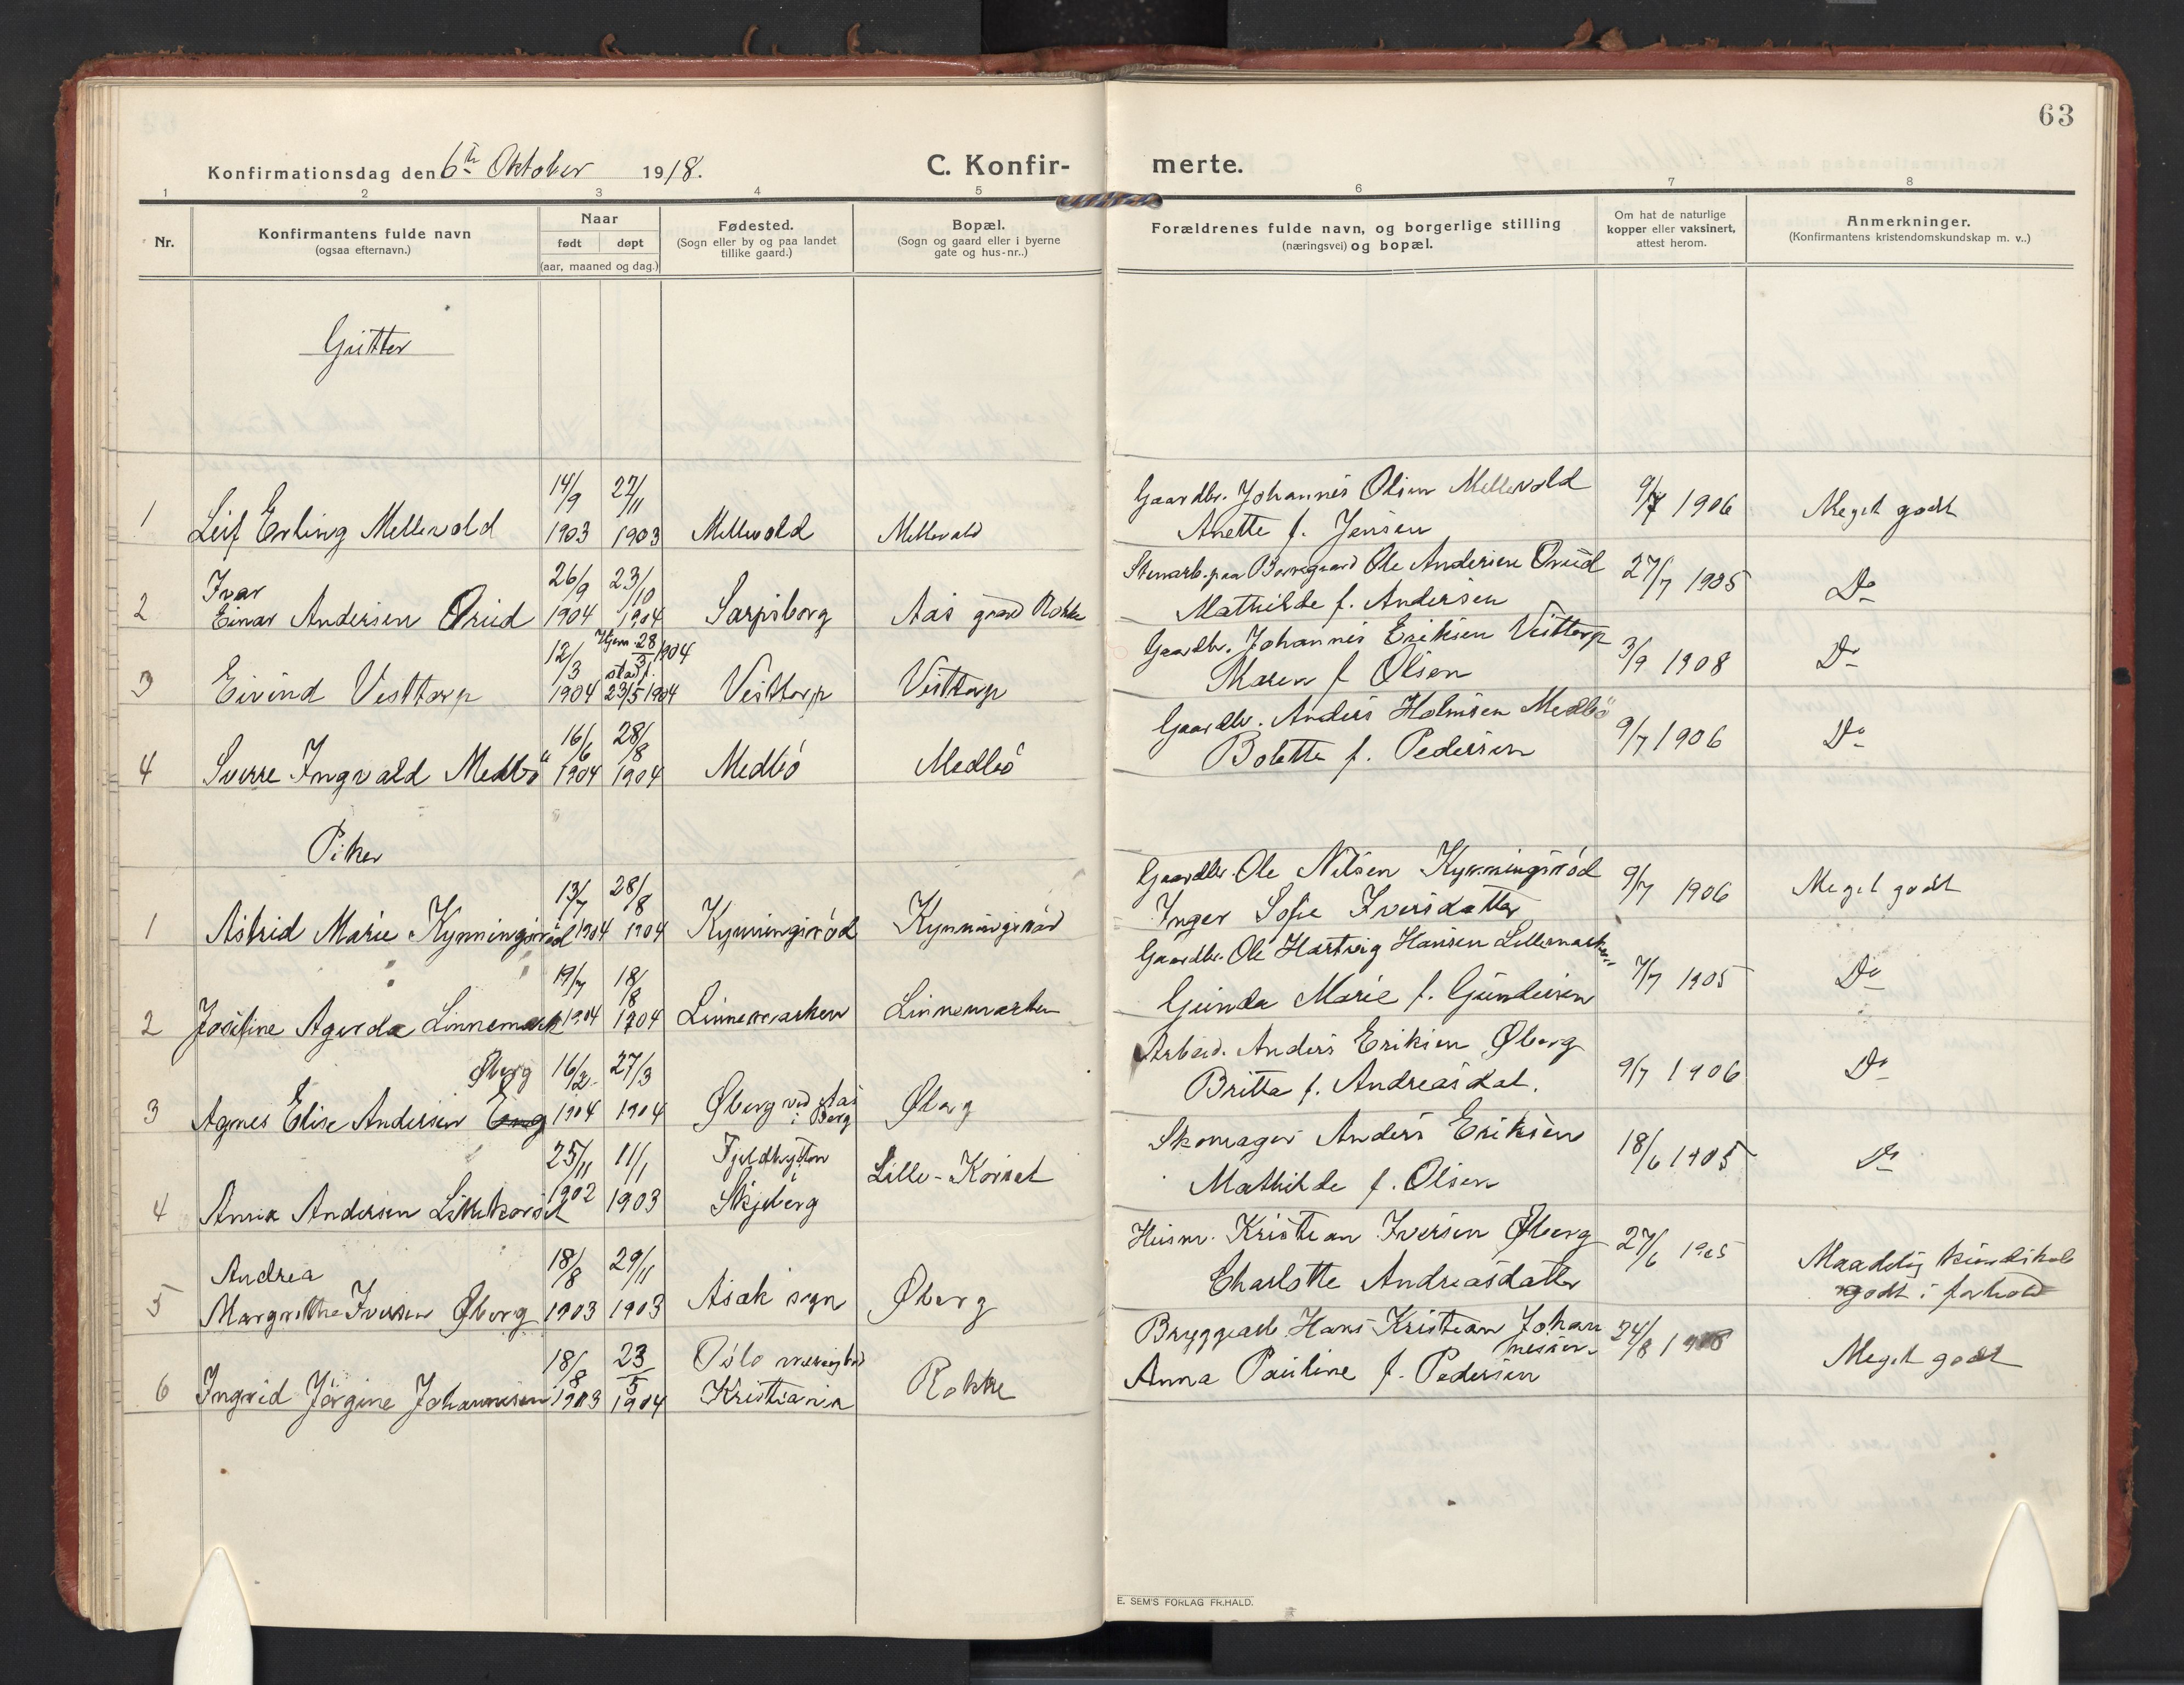 63
Konfirmationsdag den 6te Oktober 1918.
C. Konfirmerte.
1 2 3 4 5 6 7 8
Nr.
Konfirmantens fulde navn
(ogsaa efternavn.)
Naar
født døpt
(aar, maaned og dag.)
Fødested.
(Sogn eller by og paa landet
tillike gaard.)
Bopæl.
(Sogn og gaard eller i byerne
gate og hus-nr..)
Forældrenes fulde navn, og borgerlige stilling
(næringsvei) og bopæl.
Om hat de naturlige
kopper eller vaksinert,
attest herom.
Anmerkninger.
(Konfirmantens kristendomskundskap m. v..)
Gutter
14/9 27/11 Gaardbr. Johannes Olsen Mellevold 9/7 1906 Meget godt
1 Leif Erling Mellevold 1903 1903 Mellevold Mellevold Anette f. Jensen
Ivar 26/9 23/10 Stenarb. paa Borregaard Ole Andersen Orud 27/7 1905 Do
2 Einar Andersen Orud 1904 1904 Sarpsborg Aas Rokke Mathilde f. Andersen
12/3 Hjem 28/3 1904 Gaardbr. Johannes Eriksen Vesttorp 3/9 1908 Do
3 Eivind Vesttorp 1904 stadf. 23/5 1904 Vesttorp Vesttorp Maren f. Olsen
16/6 28/8 Gaardbr. Anders Holmsen Medbö 9/7 1906 Do
4 Sverre Ingvald Medbö 1904 1904 Medbö Medbö Bolette f. Pedersen
Piker
13/7 28/8 Gaardbr. Ole Nilsen Kynningsröd 9/7 1906 Meget godt
1 Astrid Marie Kynningsröd 1904 1904 Kynningsröd Kynningsröd Inger Sofie Iversdatter
19/7 18/8 Gaardbr. Ole Hartvig Hansen 7/7 1905 Do
2 Josefine Agerda Linnemark 1904 1904 Linnemarken Linnemarken Gunda Marie f. Gundersen
Øberg 16/2 27/3 Arbeid. Anders Eriksen Øberg 9/7 1906 Do
3 Agnes Elise Andersen Eng 1904 1904 Øberg ved Aas i Berg Øberg Britta f. Andreasdat.
25/11 11/1 Skomager Anders Eriksen 18/6 1905 Do
4 Anna Andersen Lillekorset 1902 1903 Skjeberg Lille-Korset Mathilde f. Olsen
Andrea 18/8 29/11 Husm. Kristian Iversen Øberg 27/6 1905 Maadelig kundskab
5 Margrethe Iversen Øberg 1903 1903 Asak sogn Øberg Charlotte Andreasdatter godt i forhold
18/8 23/5 Oslo Bryggearb. Hans Kristian Johannessen 24/8 Meget godt
6 Ingrid Jörgine Johannesen 1903 1904 Kristiania Rokke Anna Pauline f. Pedersen
E. SEM'S FORLAG FR.HALD.